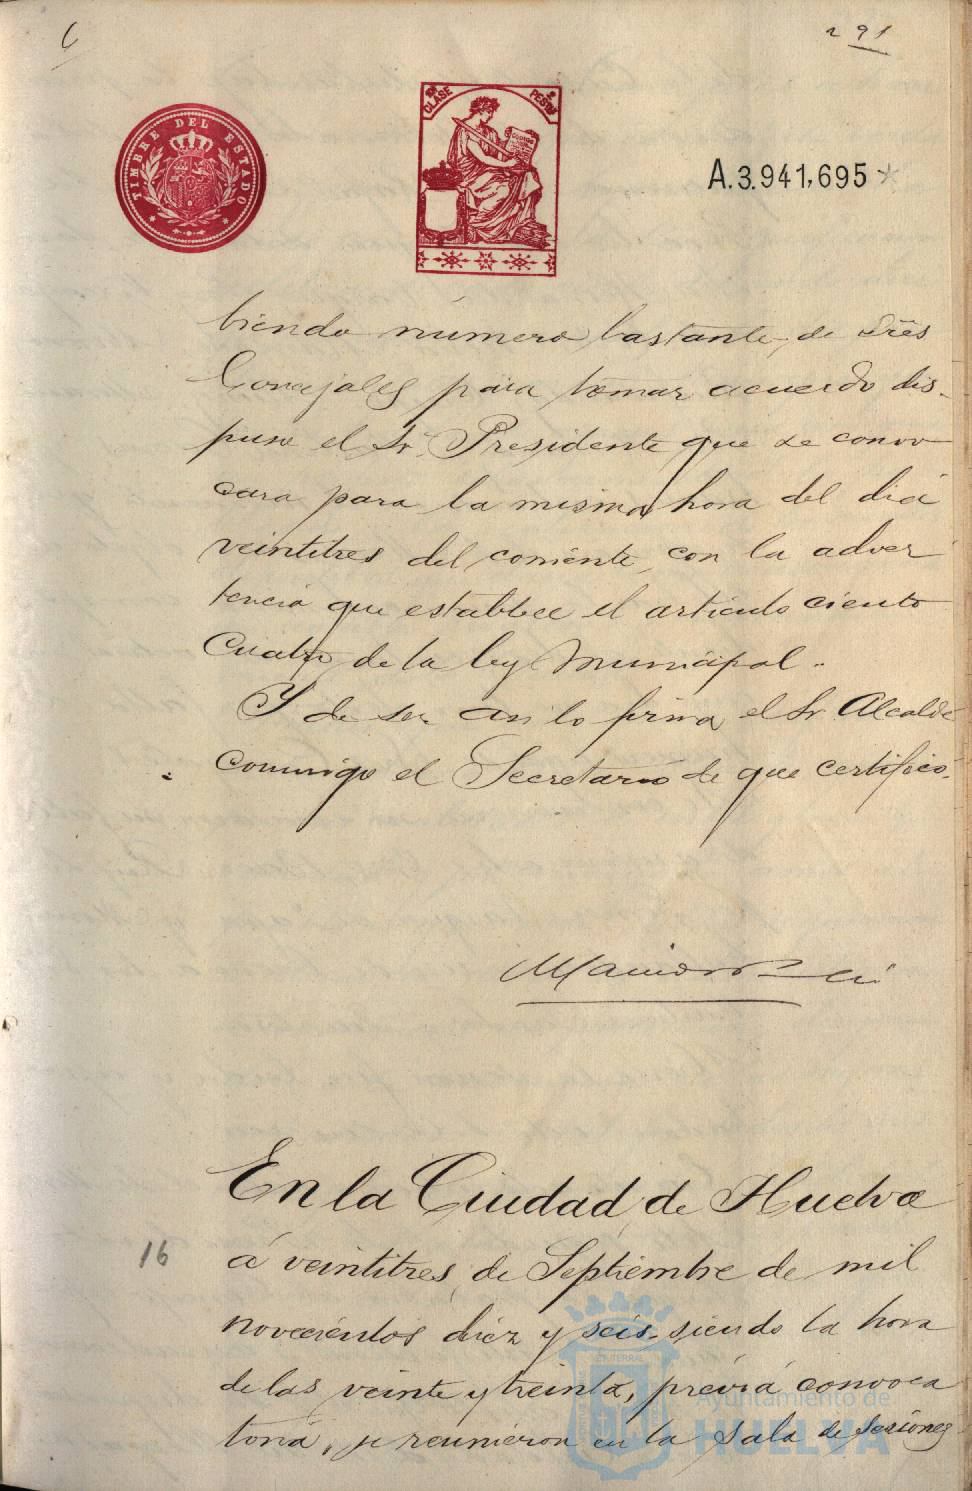 291
TIMBRE DEL ESTADO
CLASE
PESTAS
A.3.941,695
biendo número bastante, de Sres
Concejales para tomar acuerdo dis-
puso el Sr. Presidente que se convo
cara para la misma hora del diá
veintitres del corriente, con la adver
tencia que establece el articulo ciento
Cuatro de la ley Municipal.
Y de ser asi lo firma el Sr Alcalde
conmigo el Secretario de que certifico.
En la Ciudad de Huelva
16
á veintitres de Septiembre de mil
novecientos diez y seis, siendo la hora
de las veinte y treinta, prévia convoca
toria, se reunieron en la sala de sesiones
Ayuntamiento de
HUELVA